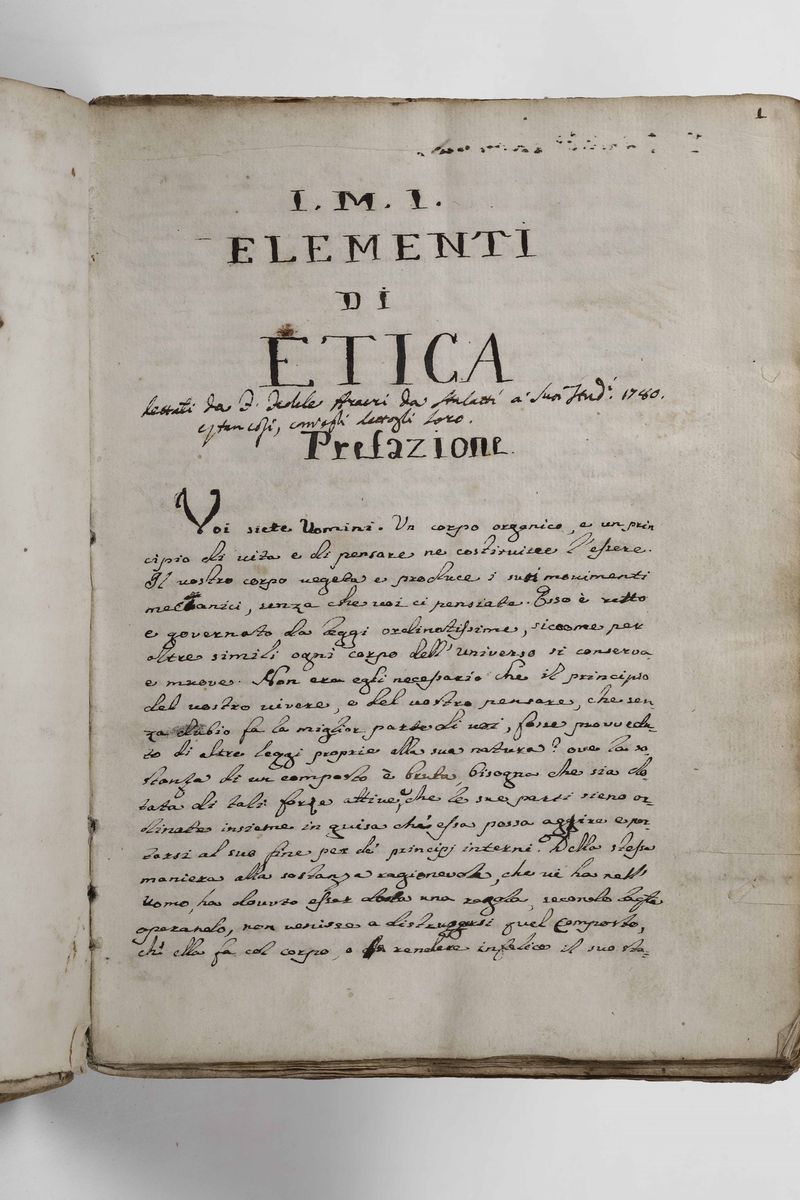 1
I. M. I.
ELEMENTI
DI
ETICA
dettati da D. Fedele da a' suoi Stud.i 1780.
loro.
Prefazione.
Voi siete Uomini. Un corpo organico, e un prin
cipio di vita e di pensare ne costituisce l'essere.
Il vostro corpo vegeta e produce i suoi movimenti
meccanici, senza che voi ci pensiate. Esso è retto
e governato da leggi ordinatissime, siccome per
altre simili ogni corpo dell'universo si conserva
e muove. Non era egli necessario che il principio
del vostro vivere, e del vostro pensare, che sen
za dubio fa la miglior parte di voi, fosse provvedu-
to di altre leggi proprie alla sua natura? ove la so
stanza di un composto è bruta, bisogna che sia do
tata di tali forze attive, che le sue parti sieno or-
dinate insieme in guisa ch'essa possa aggire e por-
tarsi al suo fine per de' principj interni. Della stessa
maniera alla sostanza ragionevole, che vi ha nell'
Uomo, ha dovuto esser data una regola, secondo la qle
operando, non venisse a distruggersi quel Composto,
ch' ella fa col corpo, o a rendere infelice il suo sta-